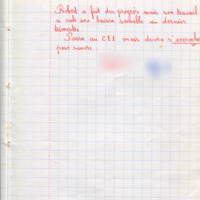 Robert a fait des progrès mais son travail
a subi une baisse sensible au dernier
bimestre.
Passe au CE2 mais devra s'accrocher
pour suivre.